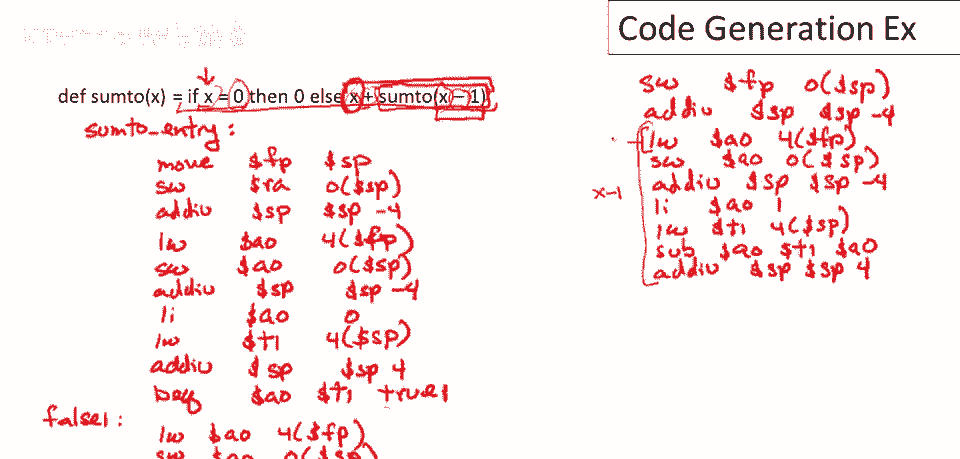 Code Generation Ex
def sumto(x) = if x = 0 then 0 else x + sumto(x – 1)
sumto_entry:
move $fp $sp
sw $ra 0($sp)
addiu $sp $sp -4
lw $a0 4($fp)
sw $a0 0($sp)
addiu $sp $sp -4
li $a0 0
lw $t1 4($sp)
addiu $sp $sp 4
beq $a0 $t1 true1
false1:
lw $a0 4($fp)
sw $a0 0($sp)
sw $fp 0($sp)
addiu $sp $sp -4
lw $a0 4($fp)
sw $a0 0($sp)
addiu $sp $sp -4
x-1
li $a0 1
lw $t1 4($sp)
sub $a0 $t1 $a0
addiu $sp $sp 4